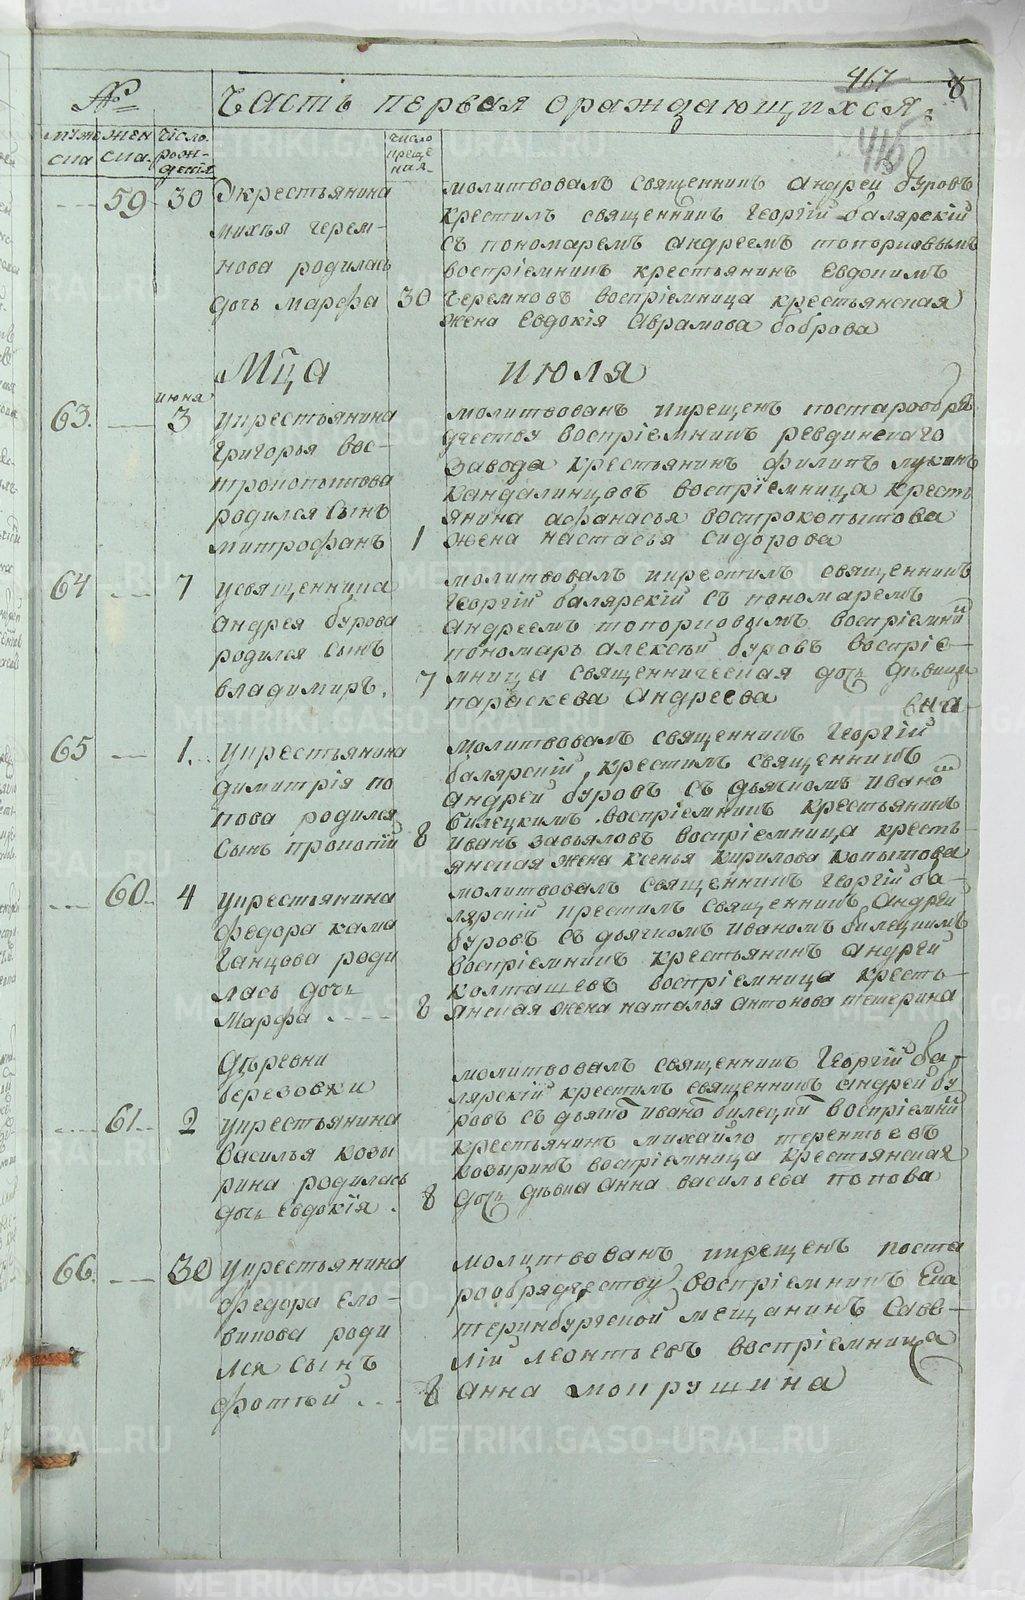 467 8
№ Часть первая о раждающихся.
415
мужеска женска число рождения число крещения
59 30 У крестьянина
михѣя черем-
нова родилась
дочь Марѳа 30
молитвовалъ священникъ андрей буровъ
крестилъ священникъ Георгій балярскій
съ пономаремъ андреемъ топорковымъ
воспріемникъ крестьянинъ Евдокимъ
Черемновъ воспріемница крестьянская
жена Евдокія Аврамова боброва
Мца июля
июня
63. 3 у крестьянина
Григорья вос-
трокопытова
родился Сынъ
митрофанъ 1
молитвованъ и крещенъ по старообря
дчеству воспріемникъ ревдинскаго
завода крестьянинъ филипъ лукинъ
кандалинцовъ воспріемница кресть
янина афанасья вострокопытова
жена настасья сидорова
64 7 у священника
андрея бурова
родился сынъ
владимиръ. 7
молитвовалъ и крестилъ священникъ
Георгій балярскій съ пономаремъ
андреемъ топорковымъ воспріемни
пономарь алексѣй буровъ воспріе-
мница священническая дочь дѣвица
параскева Андреева
65 1. у крестьянина
димитрія по
пова родился
Сынъ прокопій 8
молитвовалъ священникъ Георгій
балярскій, крестилъ священникъ
андрей буровъ съ дьячкомъ иваномъ
билецкимъ воспріемникъ крестьянинъ
иванъ завьяловъ воспріемница кресть-
янская жена ксенья кирилова копытова
60. 4 у крестьянина
федора кама
ганцова роди
лась дочь
Марфа 8
молитвовалъ священникъ Георгій ба-
лярскій крестилъ священникъ Андрей
буровъ съ дьячкомъ иваномъ билецкимъ
воспріемникъ крестьянинъ андрей
колташевъ воспріемница кресть-
янская жена наталья антонова тетерина
Деревни
березовки
61. 2 у крестьянина
василья козы
рина родилась
дочь евдокія. 8
молитвовалъ священникъ Георгій ба-
лярскій крестилъ священникъ андрей бу
ровъ съ дьячко ивано билецки воспріемни
крестьянинъ михайло терентьевъ
козыринъ воспріемница крестьянская
дочь дѣвка Анна васильева попова
66. 30 у крестьянина
федора ело-
викова роди
лся сынъ
фотѣй 8
молитвованъ и крещенъ по ста
рообрядчеству воспріемникъ Ека
теринбургской мещанинъ Савв-
лій леонтьевъ воспріемница
анна мокрушина